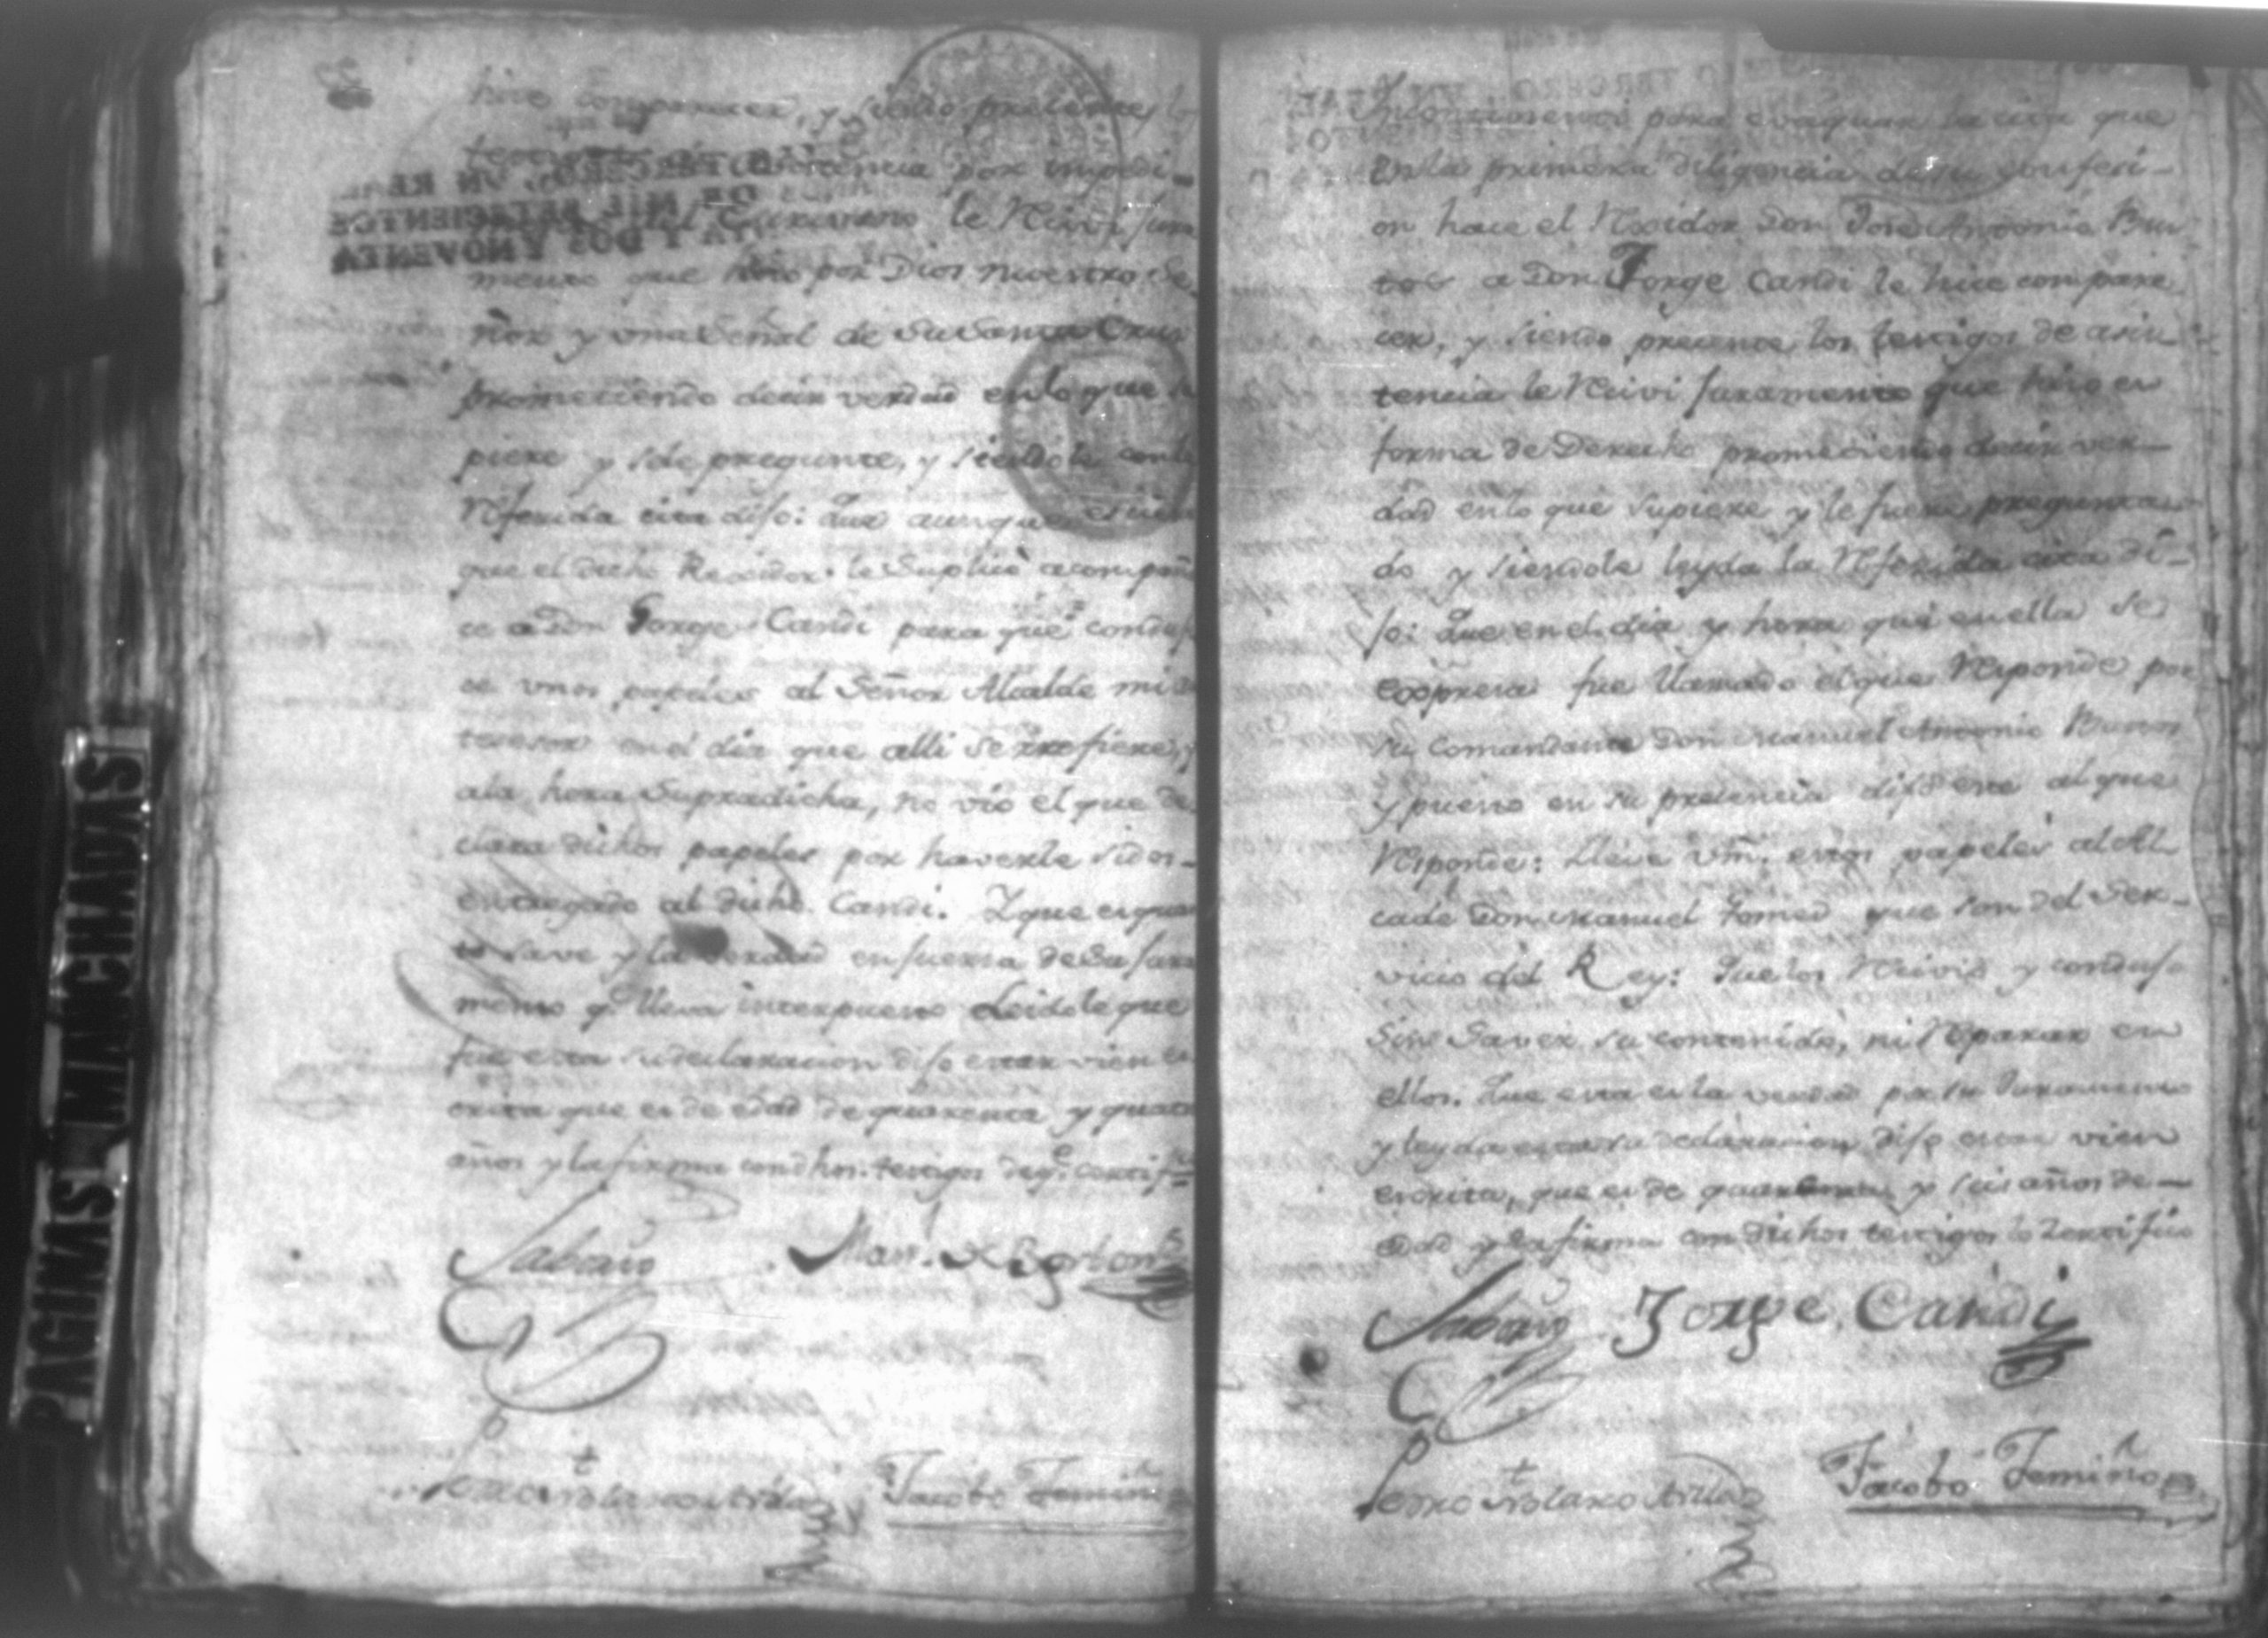 hice comparecer, y siendo presentes los
testigos de asistencia por impedi-
del Escrivano le Recivi Jura
mento que hizo por Dios nuestro Se
ñor y una Señal de Su Santa Cruz
prometiendo decir verdad en lo que su
piere y sele pregunte, y siendole
Referida cita dijo: Que aunque es cierto
que el dicho Rexidor le Suplicò acompaña
ce a Don Jorge Candi para que conduj
ce unos papeles al Señor Alcalde mi
tecesor en el dia que alli se rrefiere, y
ala hora Supradicha, no vio el que de
clara dichos papeles por haverle sidos-
entregado al dicho Candi. Y que es quan
to save y la verdad en fuerza de Su Jura
mento qe. lleva interpuesto Leidole que
fue esta su declaracion dijo estar vien es
crita que es de edad de quarenta y quatro
años y la firma con dhos. testigos de qe. certifco
Man.
Jacobo Femiño
PAGINAS MANCHADAS
Yncontinenti para evaquar la cita que
en la primera diligencia de su confesi-
on hace el Rexidor Don Jose Antonio Bur
tos a Don Jorge Candi le hice compare
cer, y siendo presente los testigos de asis-
tencia le Recivi Juramento que hizo en
forma de Derecho prometiendo decir ver-
dad en lo que supiere y le fuere pregunta-
do y siendole leyda la Referida cita di-
jo: Que en el dia y hora que en ella se
expresa fue llamado el que Responde por
su Comandante Don Manuel Antonio
y puesto en su presencia dijo este al que
Responde: Lleve Vm. estos papeles al Al
calde Don Manuel Gomes que son del Ser-
vicio del Rey: Que los Recivio y condujo
Sin Saver su contenido, ni Reparar en
ellos. Que esta es la verdad por su Juramento
y leyda esta su declaracion, dijo estar vien
escrita, que es de quarenta y seis años de-
edad y la firma con dichos testigos lo Zertifico
Jorge Candi
Pedro Nolasco
Jacobo Femiño